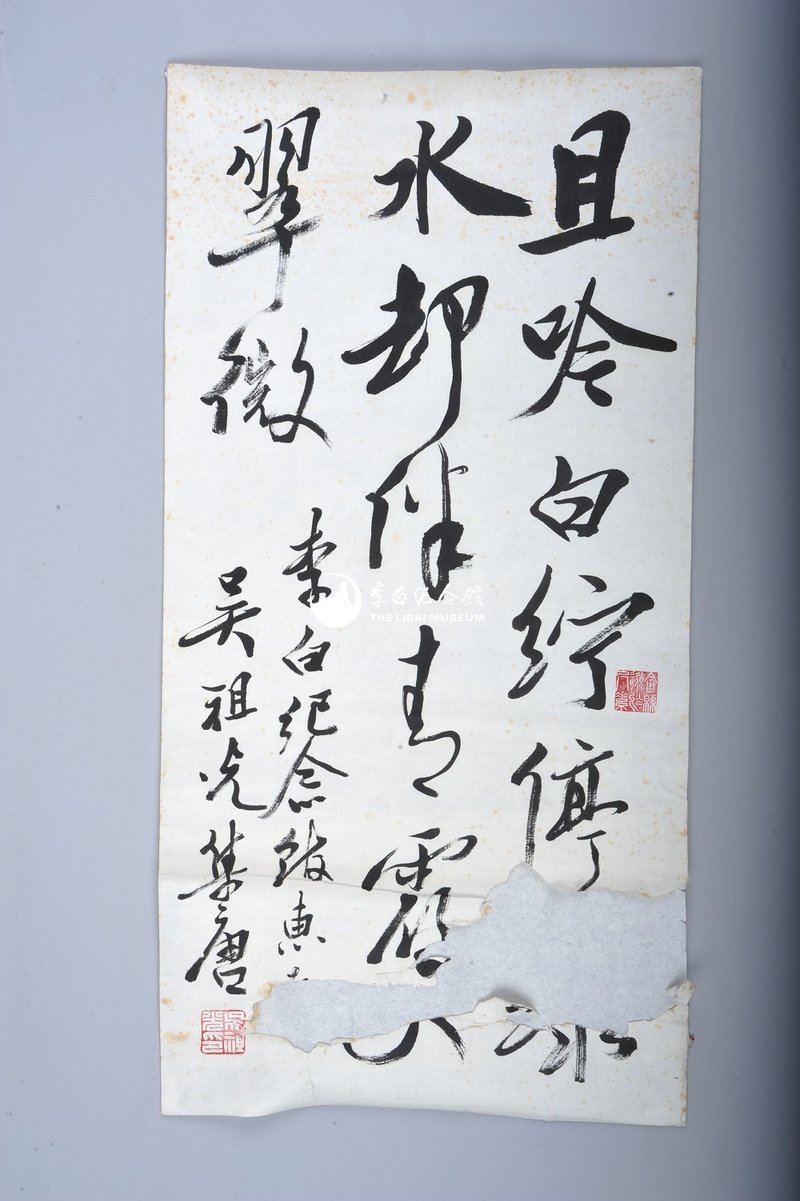 且吟白纻停
水却伴青霞
翠微
李白纪念馆惠
吴祖光集唐
李白纪念馆
THE LIBAI MUSEUM